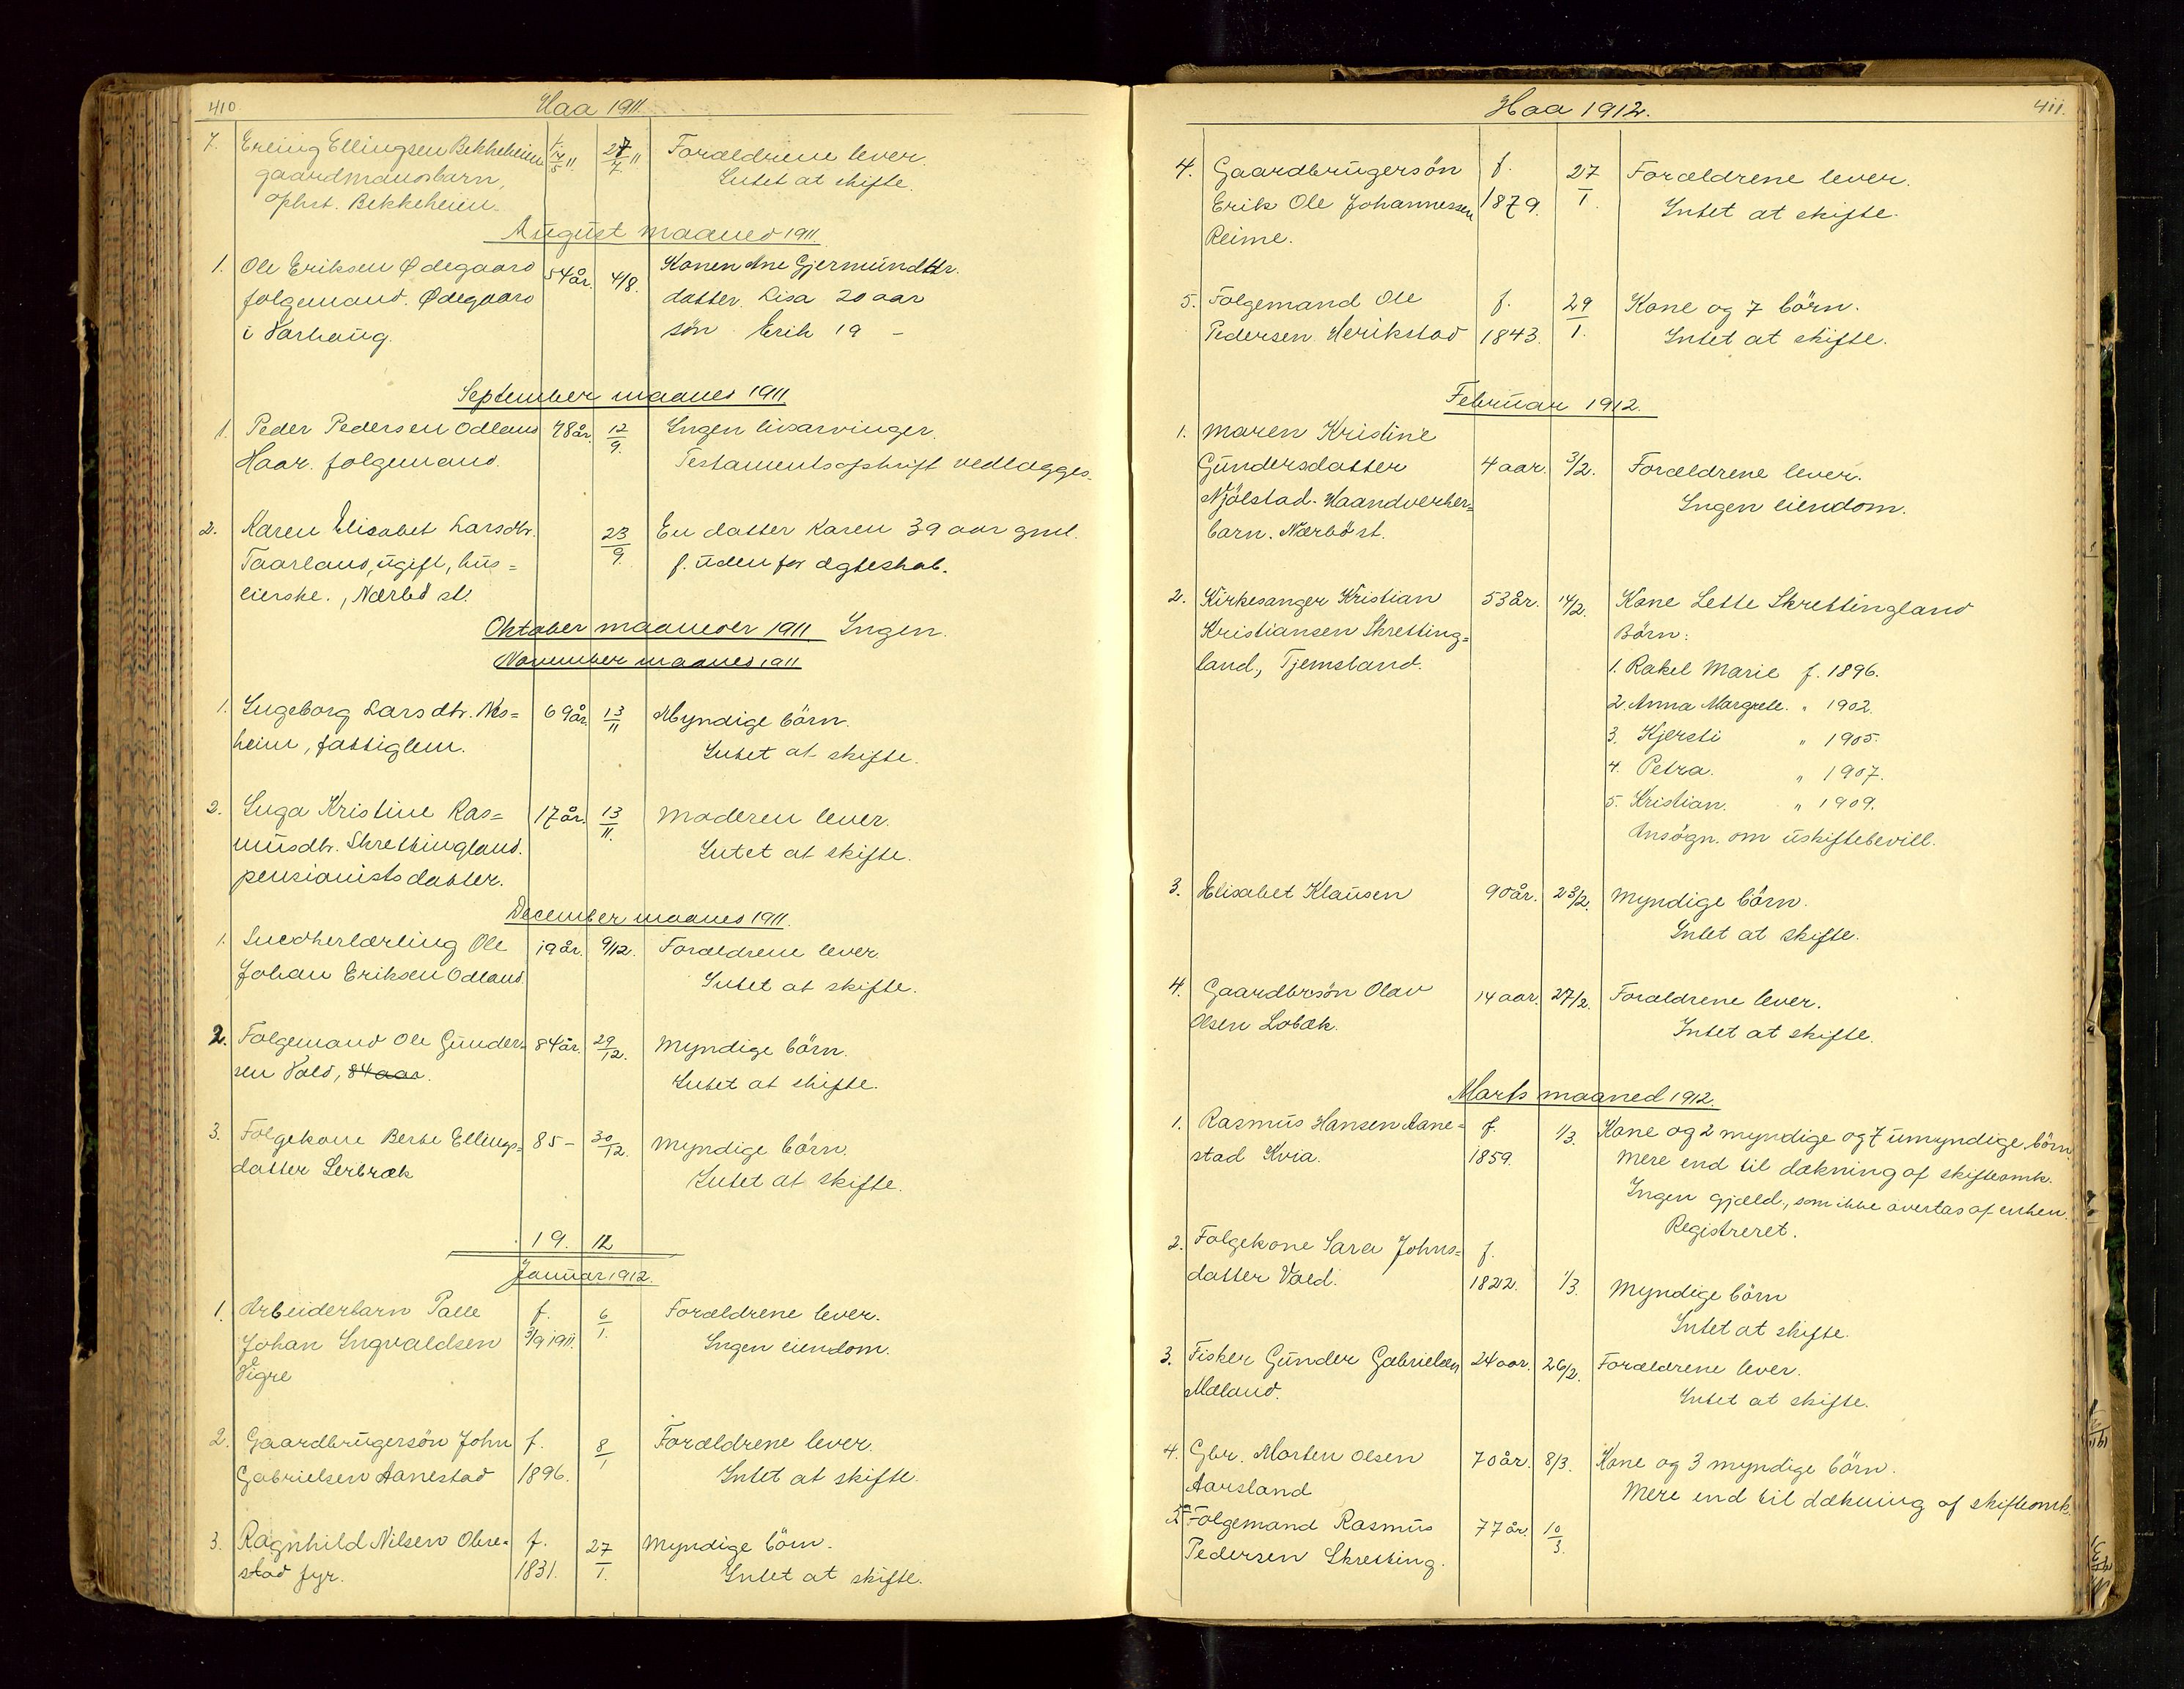 410
Haa 1911.
7. Erling Ellingsen Bekkeheim f. 14/5 11 27/7 11 Forældrene lever.
gaardmandsbarn, Intet at skifte.
ophst. Bekkeheim.
August maaned 1911.
1. Ole Eriksen Ødegaard 54 år. 4/8. Konen Ane Gjermundsdtr.
folgemand. Ødegaard datter. Lisa 20 aar
i Varhaug. sön Erik 19 –
September maaned 1911
1. Peder Pedersen Odland 78 år. 12/9. Ingen livsarvinger.
Haar. folgemand. Testamentsafskrift vedlægges.
2. Karen Elisabet Larsdtr. 23/9. En datter Karen 39 aar gml.
Taarland, ugift, hus= f. uden for ægteskab.
eierske., Nærbö st.
Oktober maaneder 1911 Ingen.
November maaned 1911
1. Ingeborg Larsdtr. Nes= 69 år. 13/11 Myndige börn.
heim, fattiglem. Intet at skifte.
2. Inga Kristine Ras= 17 år. 13/11. Moderen lever.
musdtr. Skrettingland. Intet at skifte.
pensionistsdatter.
December maaned 1911.
1. Snedkerlærling Ole 19 år. 9/12. Forældrene lever.
Johan Eriksen Odland. Intet at skifte.
2. Folgemand Ole Gunder= 84 år. 29/12. Myndige börn.
sen Vold, 84 aar. Intet at skifte.
3. Folgekone Berte Ellings= 85 – 30/12. Myndige börn.
datter Lerbræk Intet at skifte.
19. 12
Januar 1912.
1. Arbeiderbarn Palle f. 6/1. Forældrene lever.
Johan Ingvaldsen 3/9 1911. Ingen eiendom.
Vigre
2. Gaardbrugersön John f. 8/1 Forældrene lever.
Gabrielsen Aanestad 1896. Intet at skifte.
3. Ragnhild Nilsen Obre= f. 27/1. Myndige börn.
stad fyr. 1831. Intet at skifte.
Haa 1912.
411.
4. Gaardbrugersön f. 27/1. Forældrene lever.
Erik Ole Johannessen 1879. Intet at skifte.
Reime.
5. Folgemand Ole f. 29/1. Kone og 7 börn.
Pedersen Herikstad 1843. Intet at skifte.
Februar 1912.
1. Maren Kristine
Gundersdatter 4 aar. 3/2. Forældrene lever.
Njölstad. Haandverker= Ingen eiendom.
barn. Nærbö st.
2. Kirkesanger Kristian 53 år. 14/2. Kone Lette Skrettingland
Kristiansen Skretting= Börn:
land., Tjemsland. 1. Rakel Marie f. 1896.
2. Anna Margrete. " 1902.
3. Kjersti " 1905.
4. Petra. " 1907.
5. Kristian. " 1909.
Ansögn. om uskiftebevill.
3. Elisabet Klausen 90 år. 23/2. Myndige börn.
Intet at skifte.
4. Gaardbrsön Olav 14 aar. 27/2. Forældrene lever.
Olsen Lobæk. Intet at skifte.
Marts maaned 1912.
1. Rasmus Hansen Aane= f. 1/3. Kone og 2 myndige og 7 umyndige börn.
stad Kvia. 1859. Mere end til dækning af skifteomk.
Ingen gjæld, som ikke overtas af enken.
Registreret.
2. Folgekone Sara Johns= f.
datter Vold. 1822. 1/3. Myndige börn
Intet at skifte.
3. Fisker Gunder Gabrielsen 24 aar. 26/2. Forældrene lever.
Mæland. Intet at skifte.
4. Gbr. Morten Olsen 70 år. 8/3. Kone og 3 myndige börn.
Aarsland Mere end til dækning af skifteomk.
5. Folgemand Rasmus 77 år. 10/3.
Pedersen Skretting.